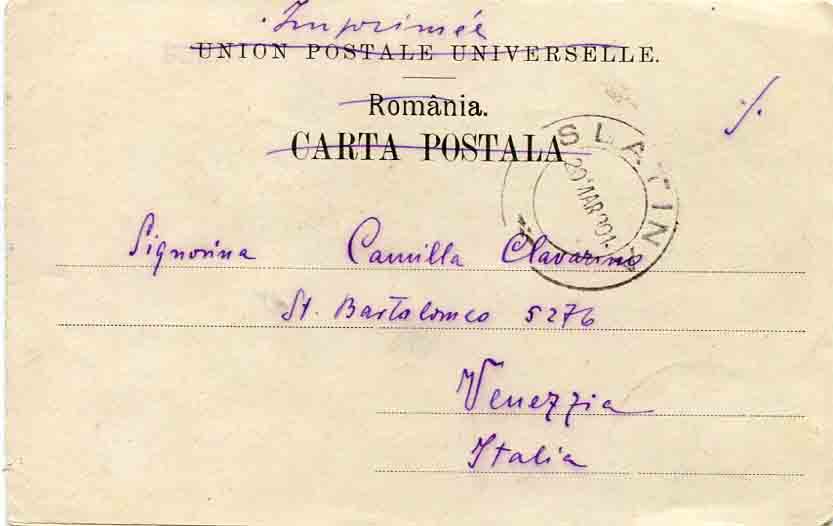 Imprimée
UNION POSTALE UNIVERSELLE.
România.
CARTA POSTALA
SLATINA
20 MAR 901
Signorina Camilla Clavarino
St. Bartolomeo 5276
Venezzia
Italia